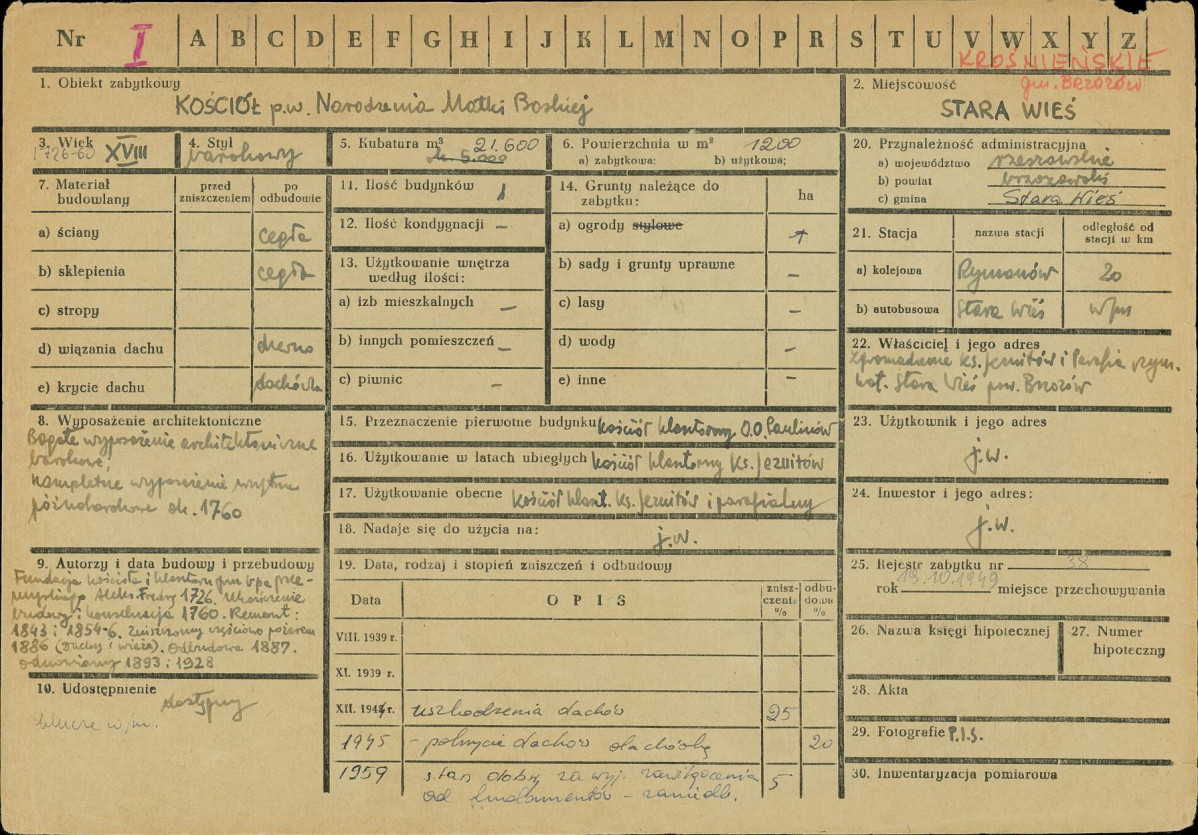 Nr I A B C D E F G H I J K L M N O P R S T U V W X Y Z
KROŚNIEŃSKIE
gm. Brzozów
1. Obiekt zabytkowy
KOŚCIÓŁ p.w. Narodzenia Matki Boskiej
2. Miejscowość
STARA WIEŚ
3. Wiek
1726-60 XVIII
4. Styl
barokowy
5. Kubatura m³ 21.600
ok. 5.000
6. Powierzchnia w m² 1200
a) zabytkowa: b) użytkowa;
7. Materiał budowlany
przed zniszczeniem
po odbudowie
a) ściany cegła
b) sklepienia cegła
c) stropy
d) wiązania dachu drewno
e) krycie dachu dachówka
8. Wyposażenie architektoniczne
Bogate wyposażenie architektoniczne
barokowe;
kompletne wyposażenie wnętrza
późnobarokowe ok. 1760
9. Autorzy i data budowy i przebudowy
Fundacja kościoła i klasztoru przez bpa prze-
myskiego Aleks. Fredry 1726. Ukończenie
budowy i konsekracja 1760. Remont:
1843 i 1854-6. Zniszczony częściowo pożarem
1886 (dachy i wieże). Odbudowa 1887.
odnowiony 1893 i 1928
10. Udostępnienie
dostępny
klucze w/m.
11. Ilość budynków 1
12. Ilość kondygnacji –
13. Użytkowanie wnętrza
według ilości:
a) izb mieszkalnych –
b) innych pomieszczeń –
c) piwnic –
14. Grunty należące do
zabytku: ha
a) ogrody stylowe +
b) sady i grunty uprawne –
c) lasy –
d) wody –
e) inne –
15. Przeznaczenie pierwotne budynku kościół klasztorny O.O. Paulinów
16. Użytkowanie w latach ubiegłych kościół klasztorny Ks. Jezuitów
17. Użytkowanie obecne kościół klaszt. Ks. Jezuitów i parafialny
18. Nadaje się do użycia na: j.w.
19. Data, rodzaj i stopień zniszczeń i odbudowy
Data OPIS zniszczenie % odbudowa %
VIII. 1939 r.
XI. 1939 r.
XII. 1944 r. uszkodzenia dachów 25
1945 – pokrycie dachów dachówką 20
1959 stan dobry za wyj. zawilgocenia 5
od fundamentów – zaniedb.
20. Przynależność administracyjna
a) województwo rzeszowskie
b) powiat brzozowski
c) gmina Stara Wieś
21. Stacja nazwa stacji odległość od stacji w km
a) kolejowa Rymanów 20
b) autobusowa Stara Wieś w/m
22. Właściciel i jego adres
Zgromadzenie Ks. Jezuitów i Parafia rzym.
kat. Stara Wieś pow. Brzozów
23. Użytkownik i jego adres
j.w.
24. Inwestor i jego adres:
j.w.
25. Rejestr zabytku nr 38
rok 13.10.1949 miejsce przechowywania
26. Nazwa księgi hipotecznej
27. Numer hipoteczny
28. Akta
29. Fotografie P.I.S.
30. Inwentaryzacja pomiarowa